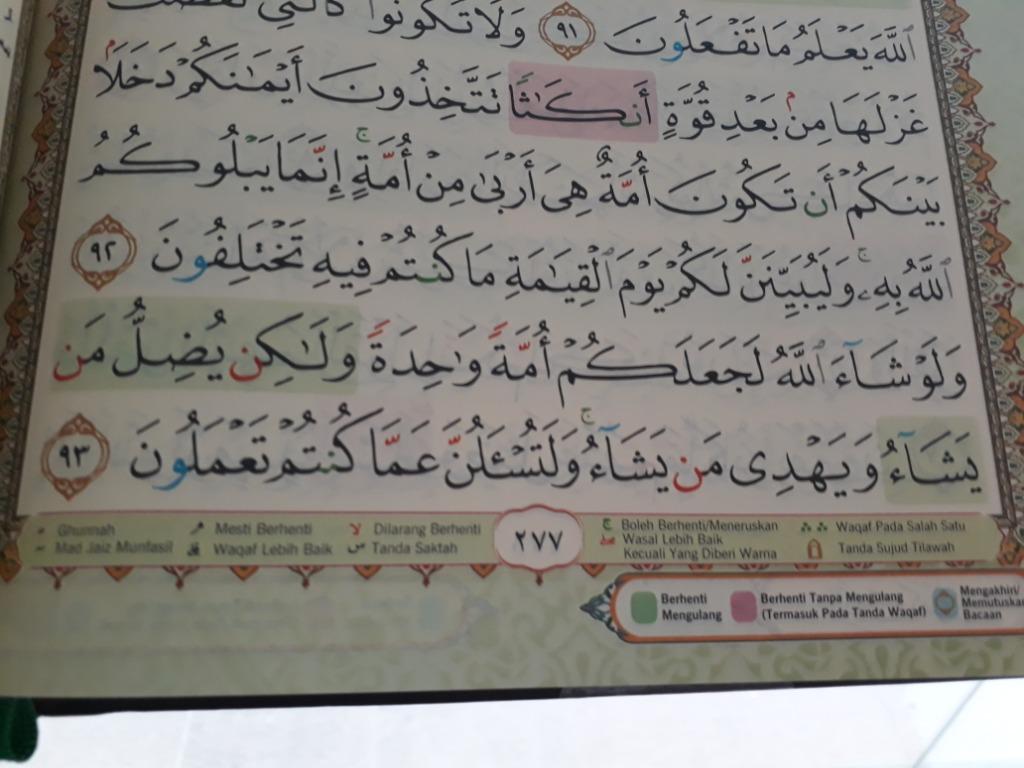 ٱللَّهَ يَعْلَمُ مَا تَفْعَلُونَ ٩١ وَلَا تَكُونُوا۟ كَٱلَّتِى نَقَضَتْ
غَزْلَهَا مِنۢ بَعْدِ قُوَّةٍ أَنكَـٰثًا تَتَّخِذُونَ أَيْمَـٰنَكُمْ دَخَلًۢا
بَيْنَكُمْ أَن تَكُونَ أُمَّةٌ هِىَ أَرْبَىٰ مِنْ أُمَّةٍ ۚ إِنَّمَا يَبْلُوكُمُ
ٱللَّهُ بِهِۦ ۚ وَلَيُبَيِّنَنَّ لَكُمْ يَوْمَ ٱلْقِيَـٰمَةِ مَا كُنتُمْ فِيهِ تَخْتَلِفُونَ ٩٢
وَلَوْ شَآءَ ٱللَّهُ لَجَعَلَكُمْ أُمَّةً وَٰحِدَةً وَلَـٰكِن يُضِلُّ مَن
يَشَآءُ وَيَهْدِى مَن يَشَآءُ ۚ وَلَتُسْـَٔلُنَّ عَمَّا كُنتُمْ تَعْمَلُونَ ٩٣
Ghunnah
Mad Jaiz Munfasil
Mesti Berhenti
Waqaf Lebih Baik
Dilarang Berhenti
Tanda Saktah
٢٧٧
Boleh Berhenti/Meneruskan
Wasal Lebih Baik
Kecuali Yang Diberi Warna
Waqaf Pada Salah Satu
Tanda Sujud Tilawah
Berhenti
Mengulang
Berhenti Tanpa Mengulang
(Termasuk Pada Tanda Waqaf)
Mengakhiri/
Memutuskan
Bacaan